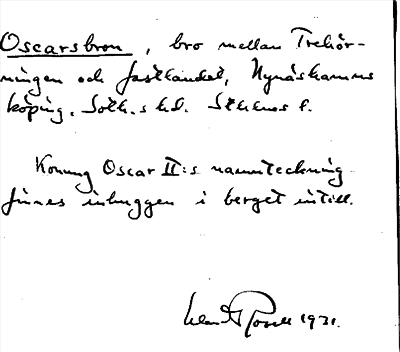 Oscarsbron, bro mellan Trehör-
ningen och fastlandet, Nynäshamns
köping. Soth. s hd. Sthlms l.
Konung Oscar II:s namnteckning
finnes inhuggen i berget intill.
1931.